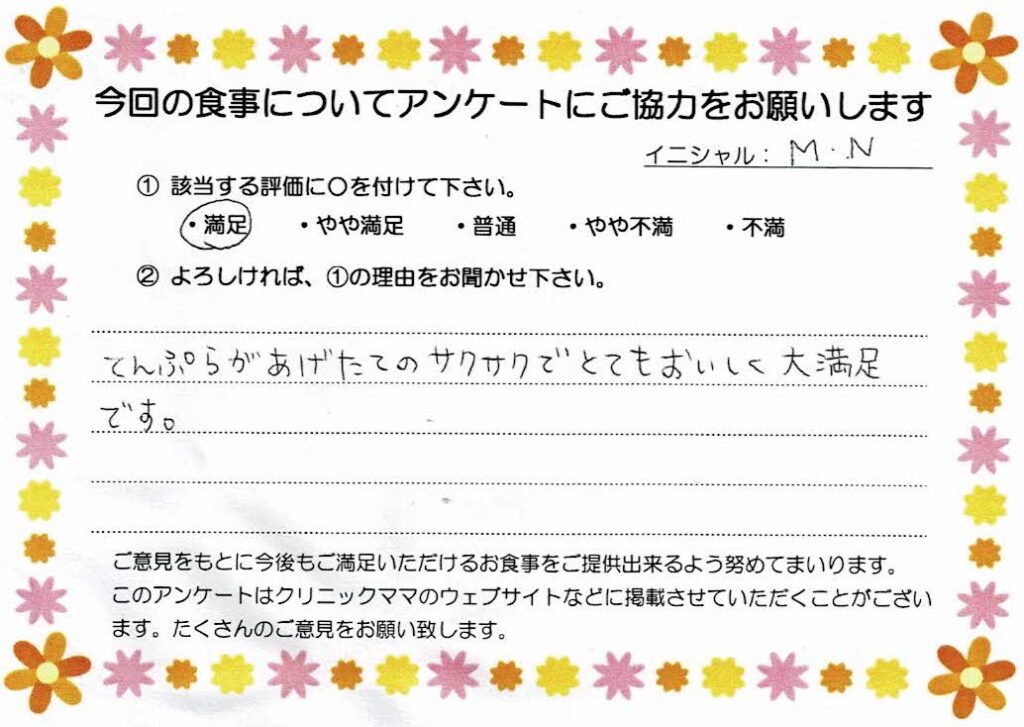 今回の食事についてアンケートにご協力をお願いします
イニシャル： M・N
① 該当する評価に○を付けて下さい。
・満足 ・やや満足 ・普通 ・やや不満 ・不満
② よろしければ、①の理由をお聞かせ下さい。
てんぷらがあげたてのサクサクでとてもおいしく大満足
です。
ご意見をもとに今後もご満足いただけるお食事をご提供出来るよう努めてまいります。
このアンケートはクリニックママのウェブサイトなどに掲載させていただくことがござい
ます。たくさんのご意見をお願い致します。